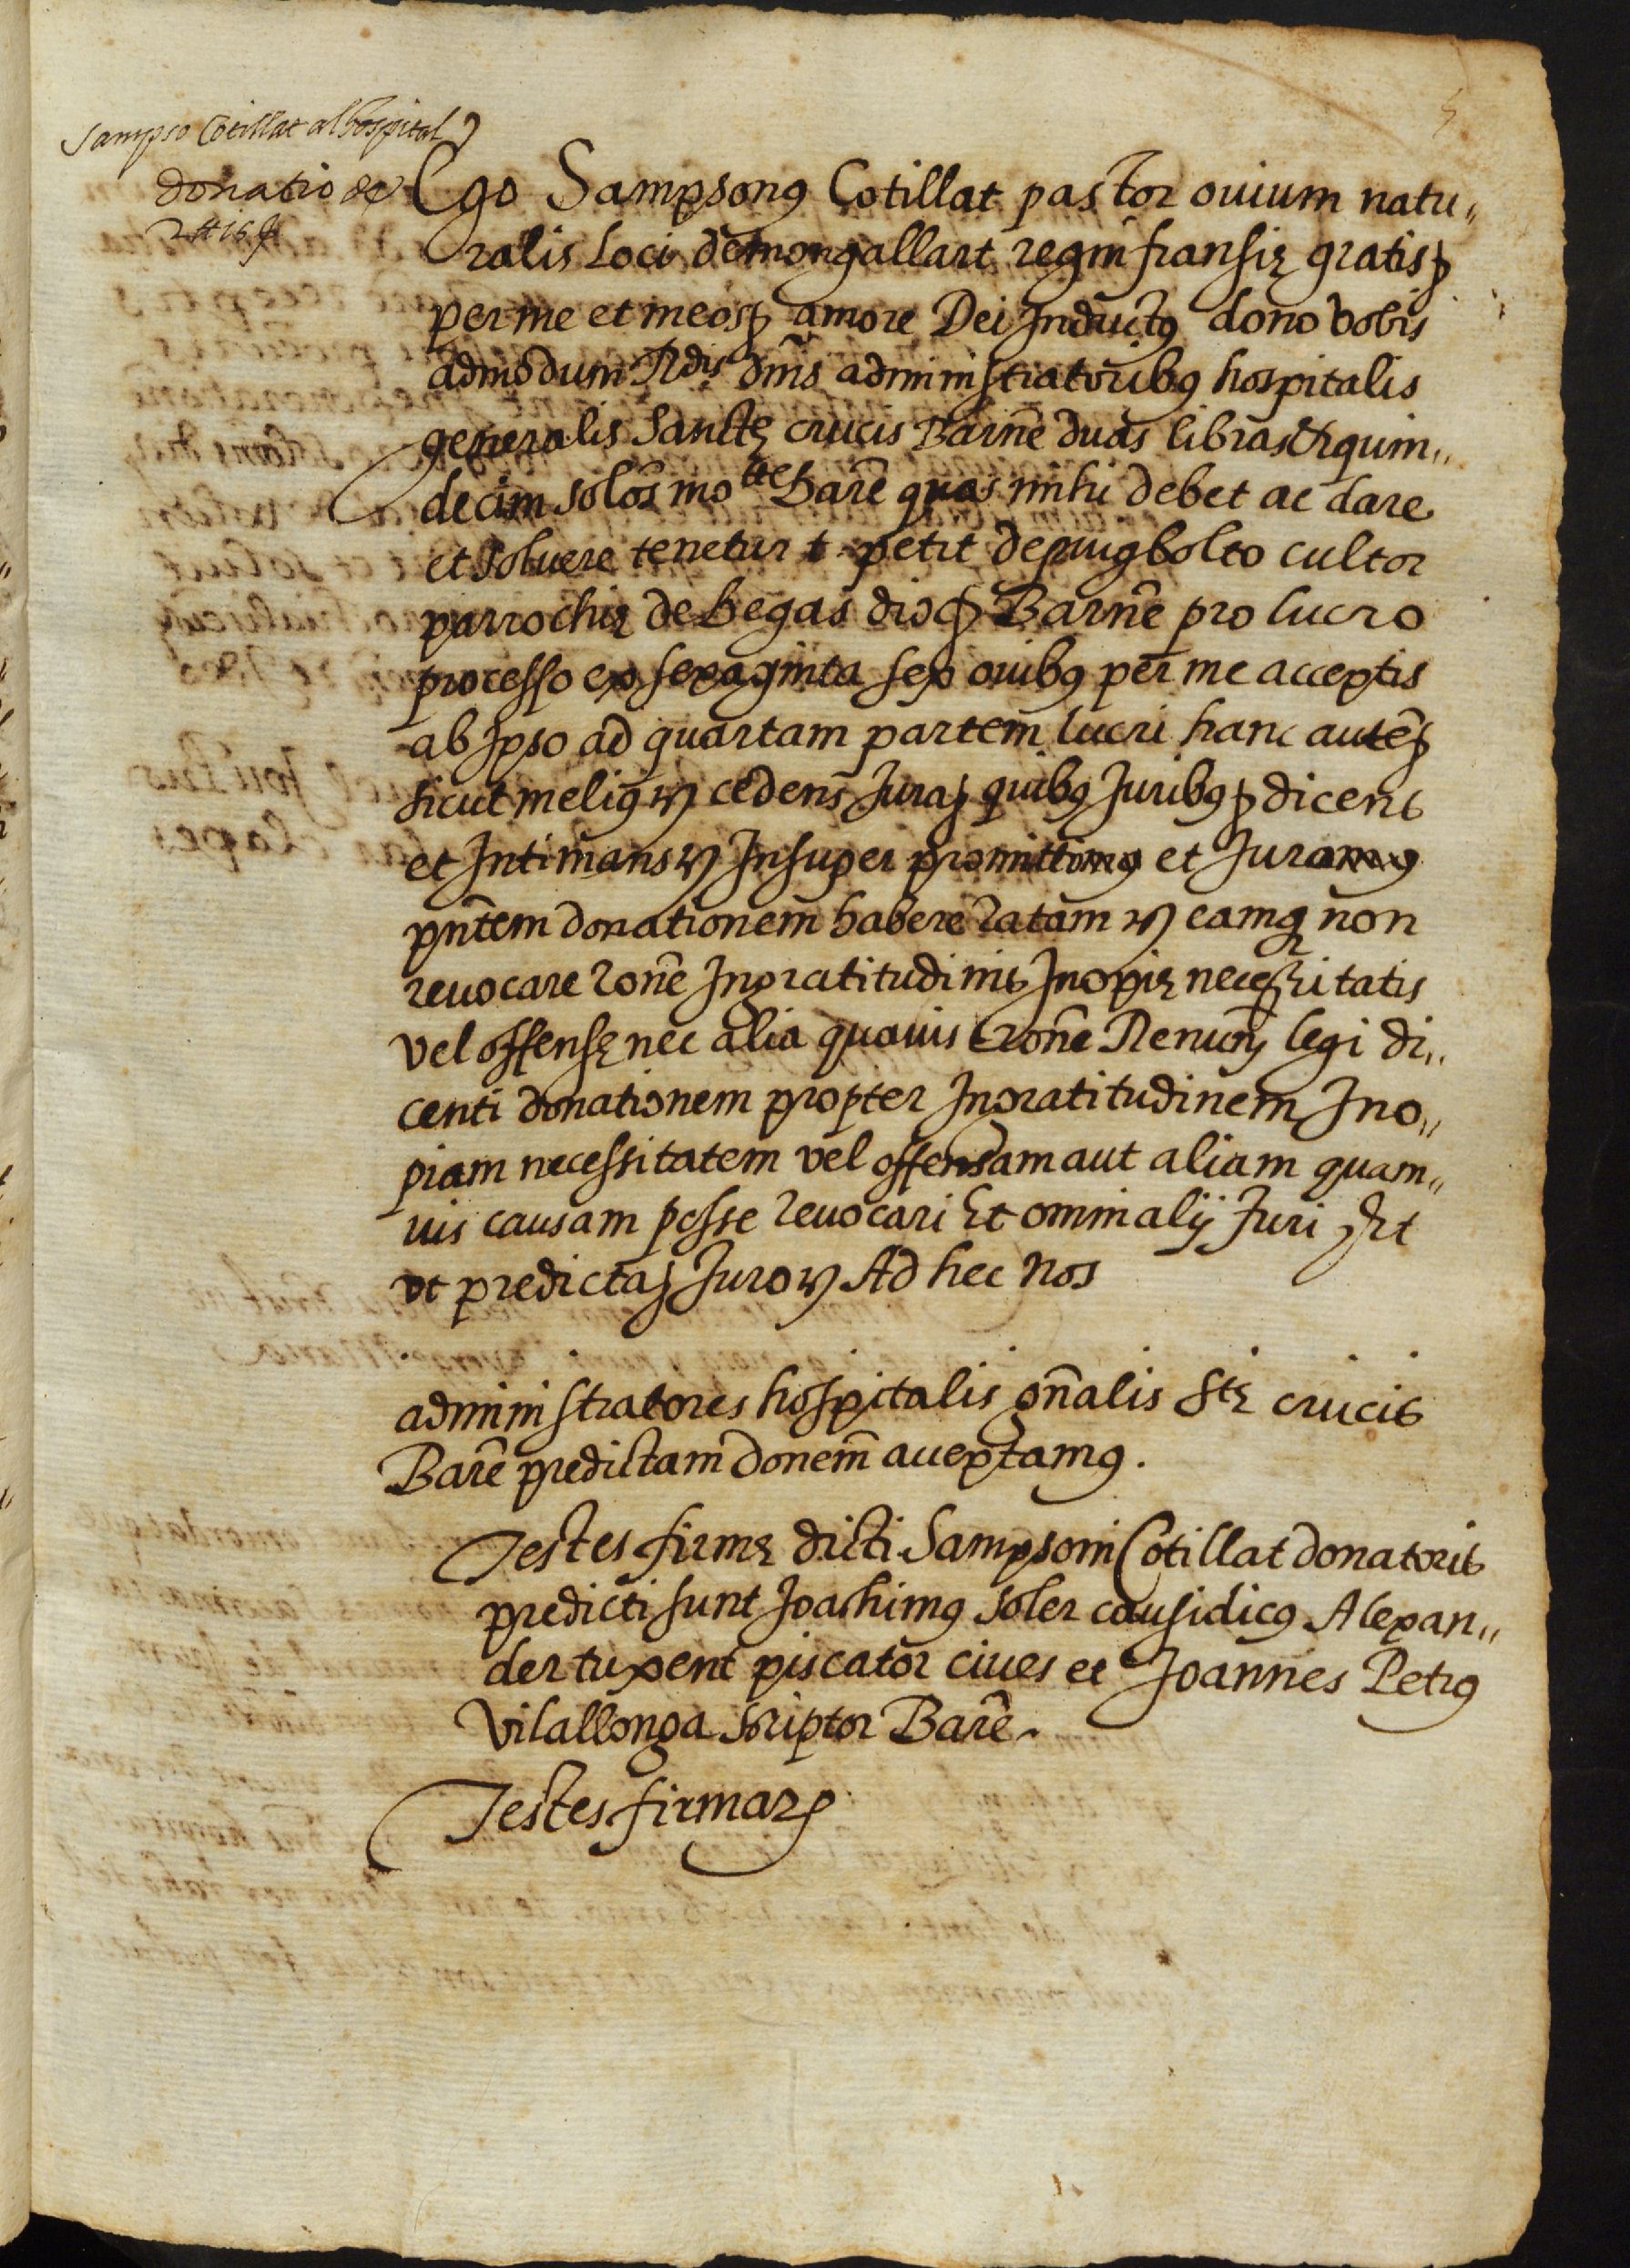 Sampso Cotillat al hospital
donatio de
2 ₶ 15 ß
Ego Sampsonꝰ Cotillat pastor ouium natu„
ralis loci de mongallart regni fransię gratis ꝫ
per me et meos ꝫ amore Dei Inductꝰ dono vobis
admodum Rdis dn̄is administratoribꝰ hospitalis
generalis Sanctę crucis Barn̄e duas libras et quin„
decim solōs motae Barn̄e quas mihi debet ac dare
et soluere tenetur t. petit de puigbolto cultor
parrochię de begas dioc̨ Barn̄e pro lucro
processo ex sexaginta sex ouibꝰ per me acceptis
ab Ipso ad quartam partem lucri hanc autē ꝫ
sicut meliꝰ ꝛc̃ cedens Jura ꝫ quibꝰ Juribꝰ ꝫ dicens
et Intimans ꝛc̃ Insuper promitto et Juro
pn̄tem donationem habere ratam ꝛc̃ eamqꝫ non
reuocare rōne Ingratitudinis Inopię necessitatis
vel offensę nec alia quauis rōne Renunꝫ legi di„
centi donationem propter Ingratitudinem Ino„
piam necessitatem vel offensam aut aliam quam„
uis causam posse reuocari Et omni alij Juri ꝫ Et
vt predicta ꝫ Juro ꝛc̃ Ad hec Nos
administratores hospitalis gn̄alis Stę crucis
Barn̄e predictam donem̄ acceptamꝰ.
Testes firmę dicti Sampsoni Cotillat donatoris
predicti sunt Joachimꝰ Soler causidicꝰ Alexan„
der tuxent piscator ciues et Joannes Petrꝰ
Vilallonga scriptor Barn̄e.
Testes firmarꝫ